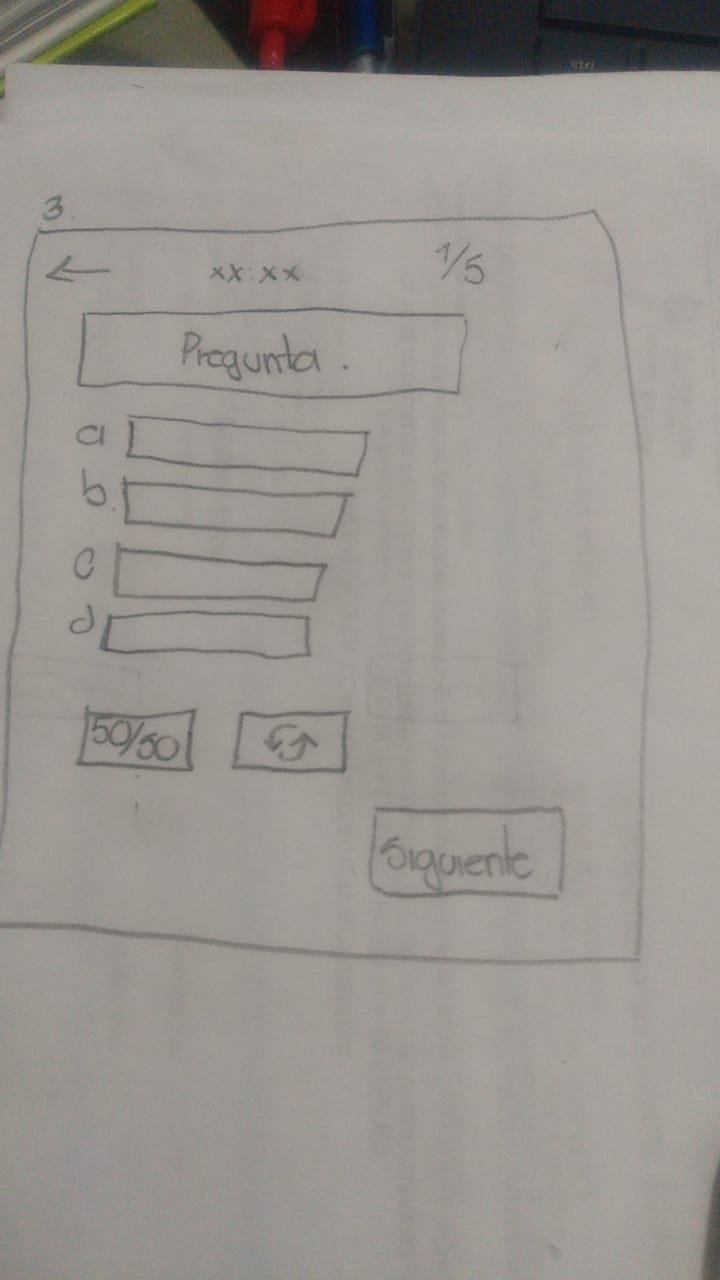 ctrl
3.
← xx:xx 1/5
Pregunta.
a
b.
c
d
50/50
Siguiente